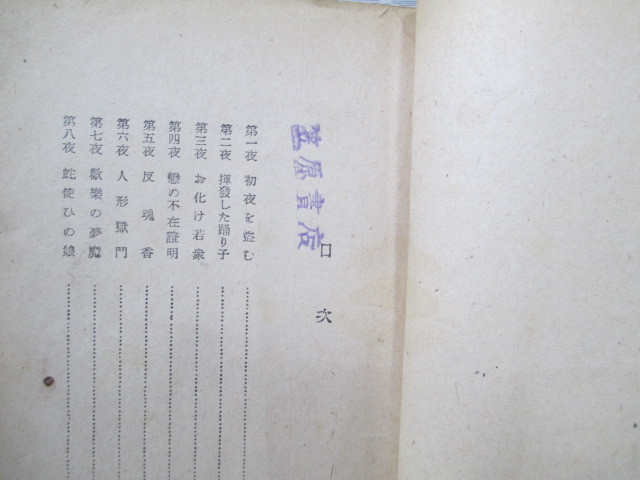 笠原書店
目次
第一夜 初夜を盗む
第二夜 揮發した踊り子
第三夜 お化け若衆
第四夜 戀の不在證明
第五夜 反魂香
第六夜 人形獄門
第七夜 歡樂の夢魔
第八夜 蛇使ひの娘